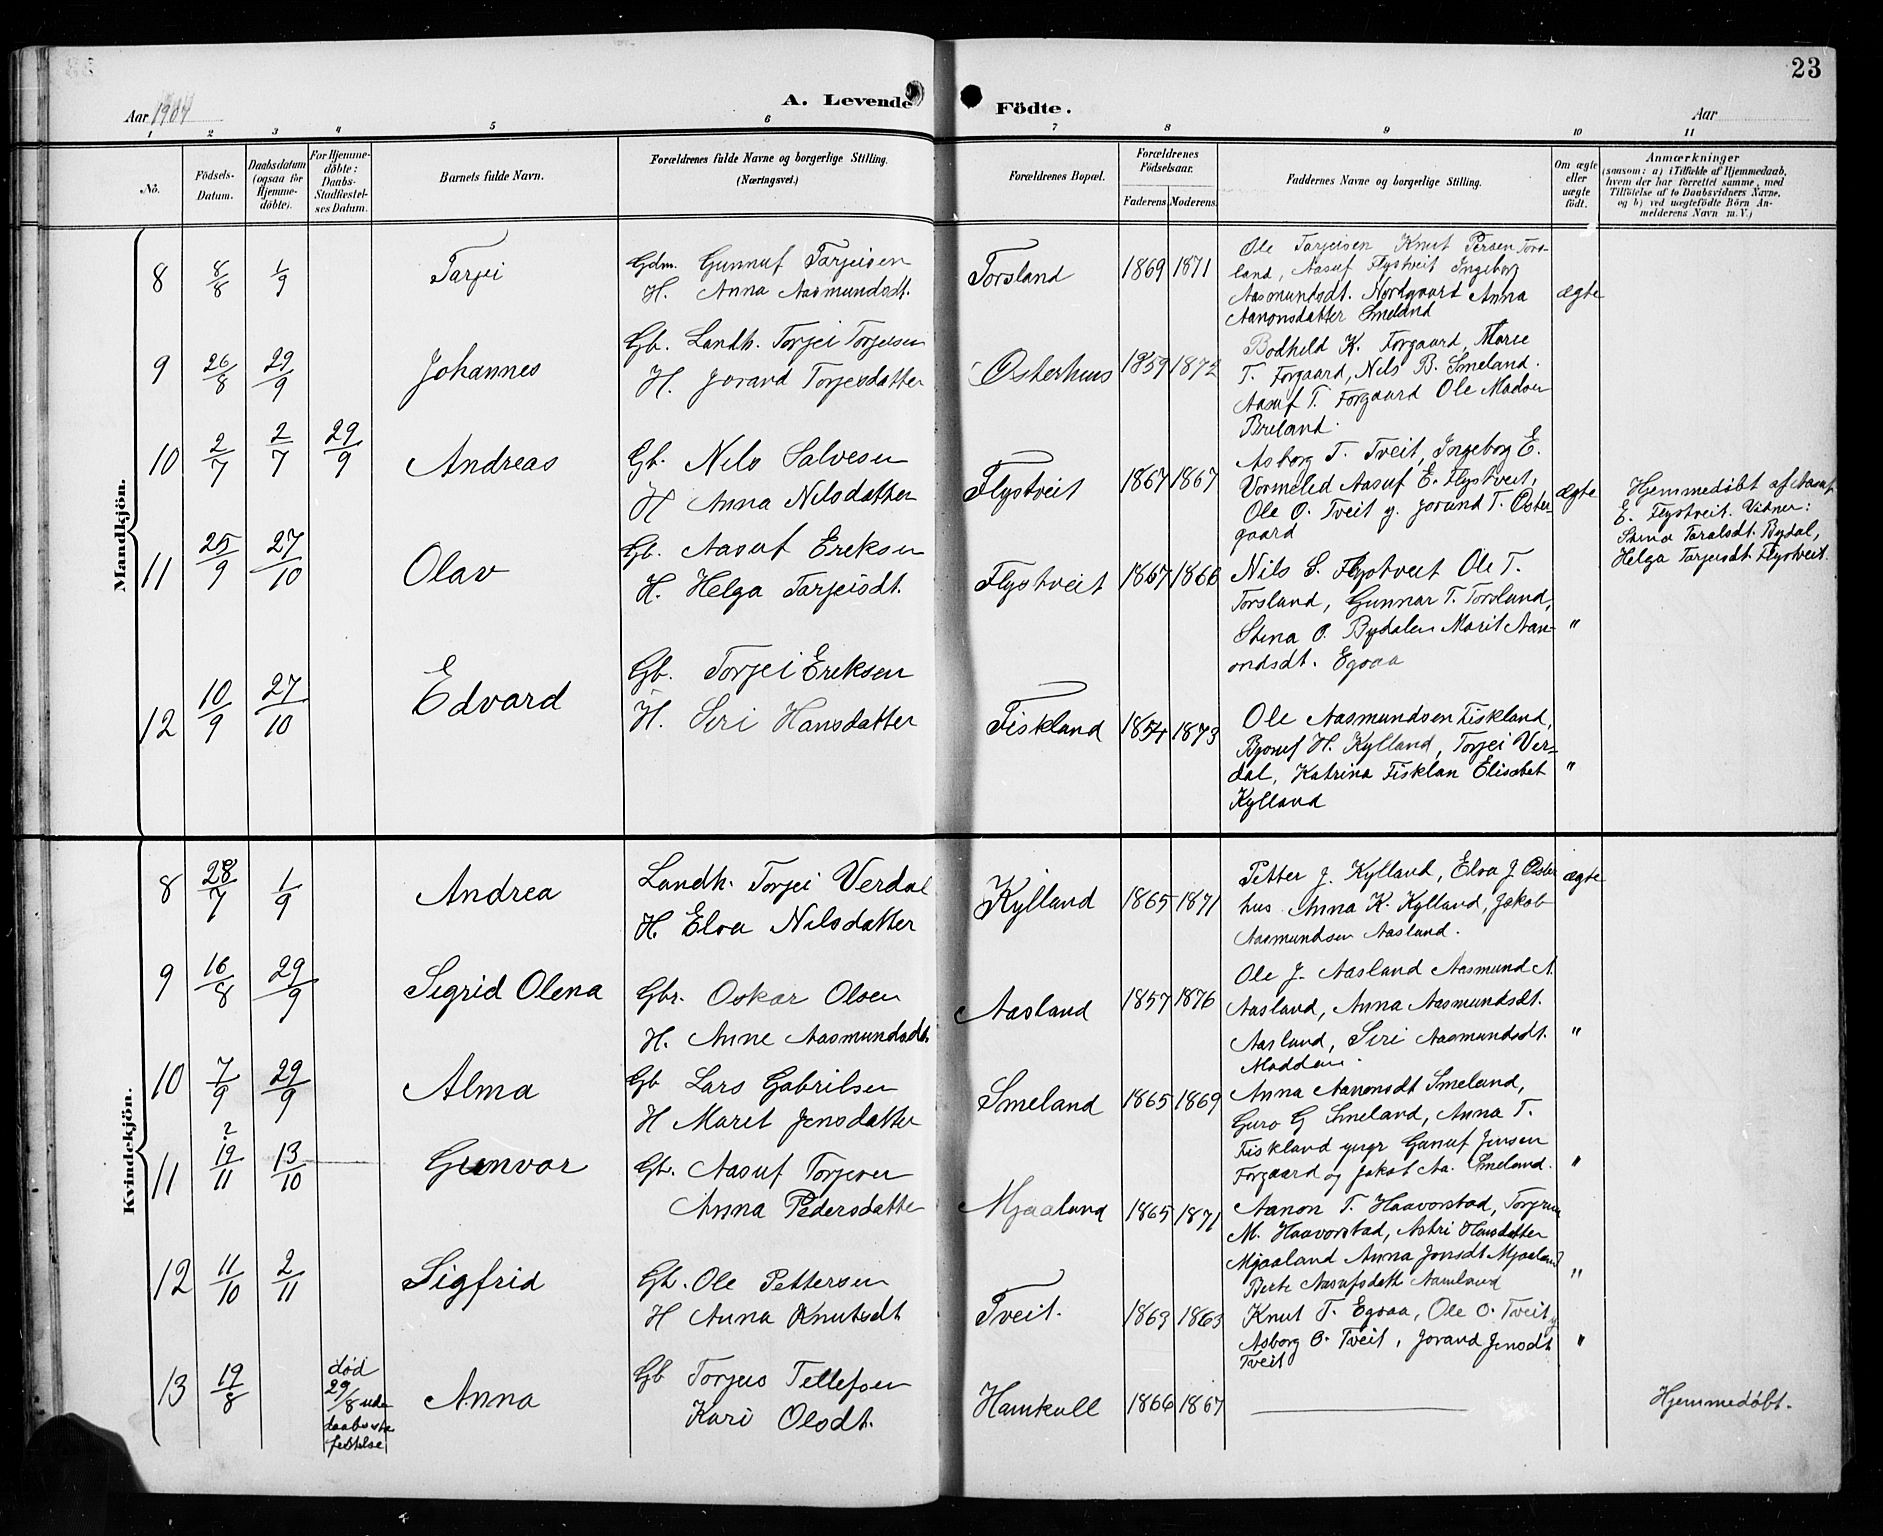 23
Aar 1907
A. Levende Födte.
Aar
1 2 3 4 5 6 7 8 9 10 11
No.
Födsels-
Datum.
Daabsdatum
(ogsaa for
Hjemme-
döbte).
For Hjemme-
döbte:
Daabs-
Stadfæstel-
ses Datum.
Barnets fulde Navn.
Forældrenes fulde Navne og borgerlige Stilling.
(Næringsvei.)
Forældrenes Bopæl.
Forældrenes
Födselsaar.
Faderens Moderens
Faddernes Navne og borgerlige Stilling.
Om ægte
eller
uægte
födt.
Anmærkninger
(saasom: a) i Tilfælde af Hjemmedaab,
hvem der har forrettet samme, med
Tilföielse af to Daabsvidners Navne,
og b) ved uægtefödte Börn An-
melderens Navn m. V.)
Mandkjön.
8 8/8 1/9 Tarjei
Gdm. Gunnuf Tarjeisen
H. Anna Aasmundsdt.
Torsland 1869 1871
Ole Tarjeisen Knut Persen Tors-
land, Aasuf Flystveit Ingeborg
Aasmundsdt. Nordgaard Anna
Aanonsdatter Smeland
ægte
9 26/8 29/9 Johannes
Gb. Landh. Torjei Torjeisen
H. Jorand Torjeisdatter
Osterhuus 1859 1872
Bodheld K. Forgaard, Marie
T. Forgaard, Nils B. Smeland.
Aasuf T. Forgaard Ole Madsen
Breland.
10 2/7 2/7 29/9 Andreas
Gb. Nils Salvesen
H Anna Nilsdatter
Flystveit 1867 1867
Asborg T. Tveit, Ingeborg E.
Vormelid Aasuf E. Flystveit,
Ole O. Tveit g. Jorund T. Oster-
gaard
ægte
Hjemmedøbt af Aasuf
E. Flystveit. Vidner:
Stina Taralsdt. Bydal,
Helga Tarjeisdt. Flystveit.
11 25/9 27/10 Olav
Gb. Aasuf Eriksen
H. Helga Tarjeisdt.
Flystveit 1867 1866
Nils S. Flystveit Ole T.
Torsland, Gunnar T. Torsland,
Stina O. Bydalen Marit Aan-
ondsdt. Egsaa
"
12 10/9 27/10 Edvard
Gb. Torjei Eriksen
H. Siri Hansdatter
Fiskland 1854 1873
Ole Aasmundsen Fiskland,
H. Kylland, Torjei Ver-
dal, Katrina Fisklan Elisabet
Kylland
"
Kvindekjön.
8 28/7 1/9 Andrea
Landh. Torjei Verdal
H. Elva Nilsdatter
Kylland 1865 1871
Petter J. Kylland, Elva J Oster
hus Anna K. Kylland, Jakob
Aasmundsen Aasland.
ægte
9 16/8 29/9 Sigrid Olena
Gbr. Oskar Olsen
H. Anne Aasmundsdt.
Aasland 1857 1876
Ole J. Aasland Aasmund A.
Aasland, Anna Aasmundsdt.
Aasland, Siri Aasmundsdt.
"
10 7/9 29/9 Alma
Gb Lars Gabrilsen
H Maret Jensdatter
Smeland 1865 1869
Anna Aanonsdt Smeland,
Guro G Smeland, Anna T.
Fiskland yngr Gunuf Jensen
Forgaard og Jakob Aa. Smeland.
"
11 ? 19/11 13/10 Gunvor
Gb. Aasuf Torjesen
Anna Pedersdatter
Mjaaland 1865 1871
Aanon T. Haavorstad, Torjus
M. Haavorstad, Astri Hansdatter
Mjaaland Anna Jonsdt Mjaaland
Berte Aasufsdatt Aamland
"
12 11/10 2/11 Sigfrid
Gb. Ole Pettersen
H Anna Knutsdt
Tveit. 1863 1863
Knut T. Egsaa, Ole O. Tveit y
Asborg O. Tveit, Jorand Jensdt
Tveit
"
13 19/8
død
29/8 uden
daabssta
festelse
Anna
Gb Torjus Tellefsen
Kari Olsdt.
Hamkoll 1866 1867
Hjemmedøbt.